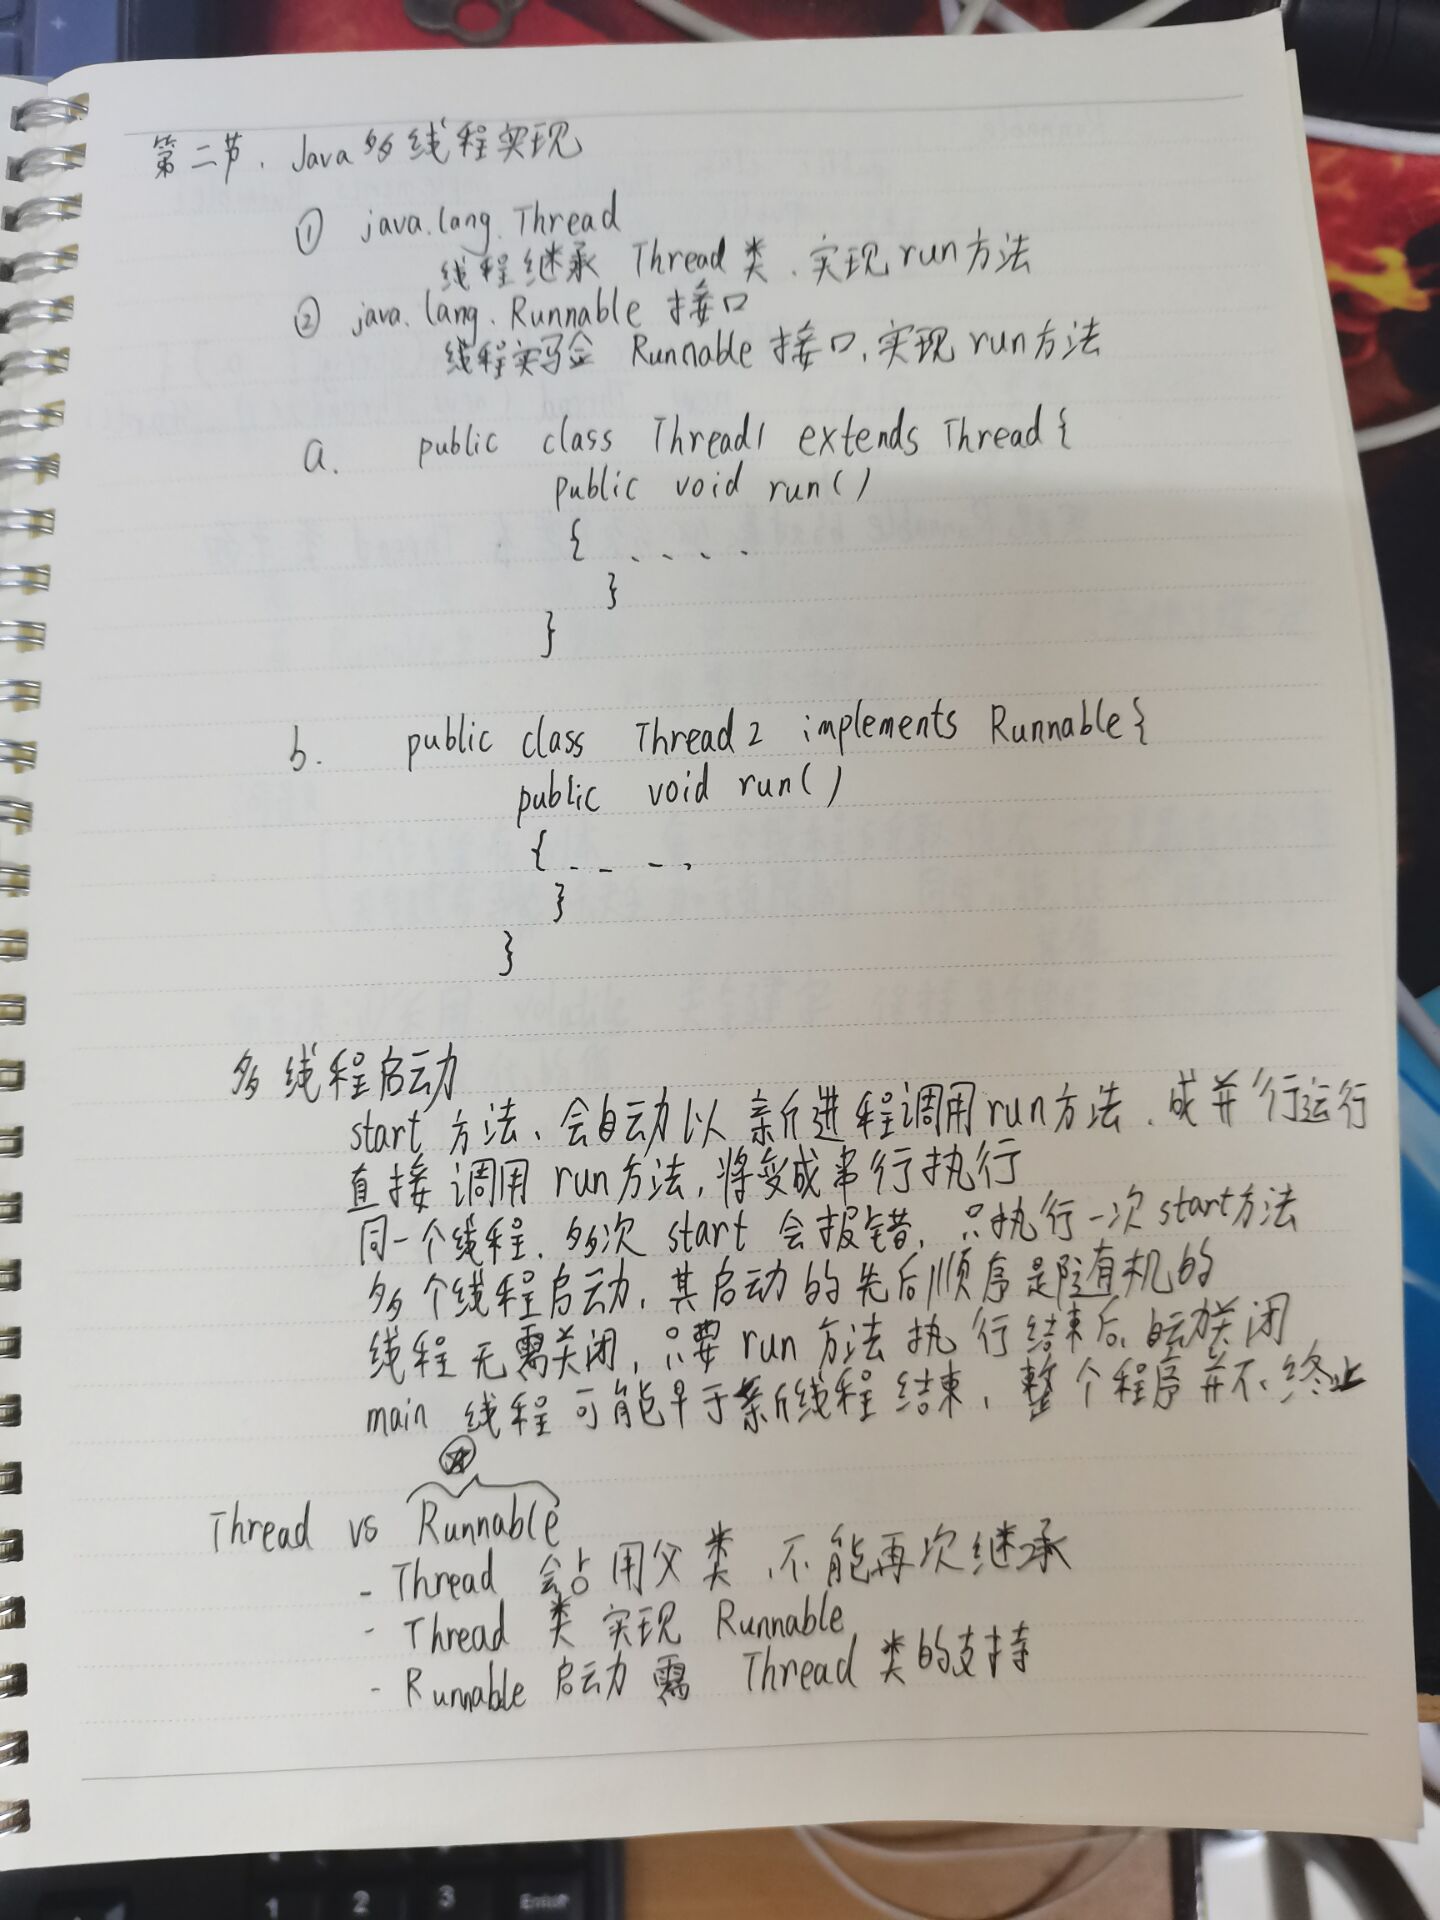 第二节. Java 多线程实现
① java.lang.Thread
线程继承 Thread 类、实现 run 方法
② java.lang.Runnable 接口
线程实验 Runnable 接口,实现 run 方法
a. public class Thread1 extends Thread{
public void run()
{ ....
}
}
b. public class Thread2 implements Runnable{
public void run()
{ ....
}
}
多线程启动
start 方法、会自动以新进程调用 run 方法、成并行运行
直接调用 run 方法,将变成串行执行
同一个线程、多次 start 会报错,只执行一次 start 方法
多个线程启动,其启动的先后顺序是随机的
线程无需关闭,只要 run 方法执行结束后,自动关闭
main 线程可能早于新线程结束,整个程序并不终止
Thread vs Runnable
- Thread 会占用父类,不能再次继承
- Thread 类 实现 Runnable
- Runnable 启动需 Thread 类的支持
1 2 3 Enter